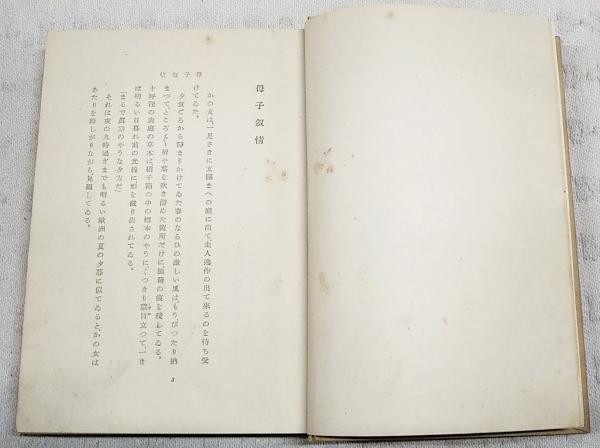 母子叙情
母子叙情
かの女は、一足さきに玄関まへの庭に出て、主人逸作の出て来るのを待ち受
けてゐた。
夕食ごろから静まりかけてゐた春のならひの激しい風は、もうぴつたり納
まつて、ところ〴〵屑や葉を吹き溜めた箇所だけに、狼藉の痕を残してゐる。
十坪程の表庭の草木は、硝子箱の中の標本のやうに、くつきり茎目立つて、一き
は明るい日暮れ前の光線に、形を截り出されてゐる。
「まるで真空のやうな夕方だ」
それは夜の九時過ぎまでも明るい欧洲の夏の夕暮に似てゐると、かの女は
あたりを珍しがりながら、見廻してゐる。
3